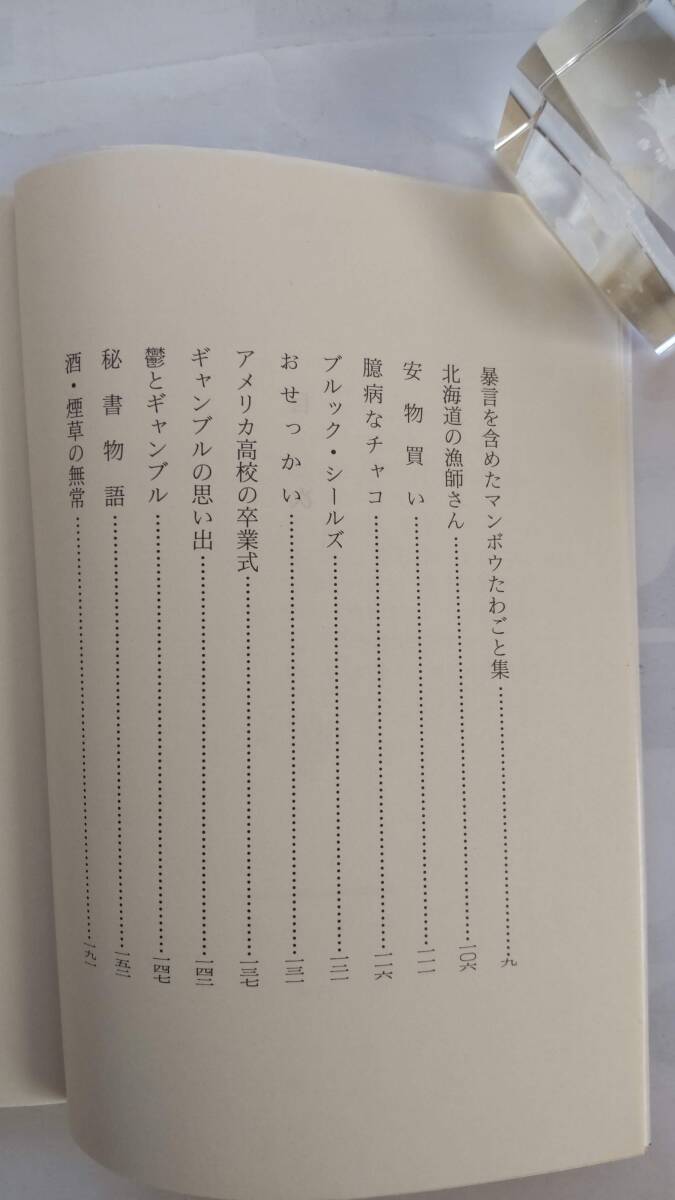 暴言を含めたマンボウたわごと集……………………九
北海道の漁師さん……………………一〇六
安物買い……………………一一一
臆病なチャコ……………………一一六
ブルック・シールズ……………………一二一
おせっかい……………………一三一
アメリカ高校の卒業式……………………一三七
ギャンブルの思い出……………………一四二
鬱とギャンブル……………………一四七
秘書物語……………………一五二
酒・煙草の無常……………………一九一